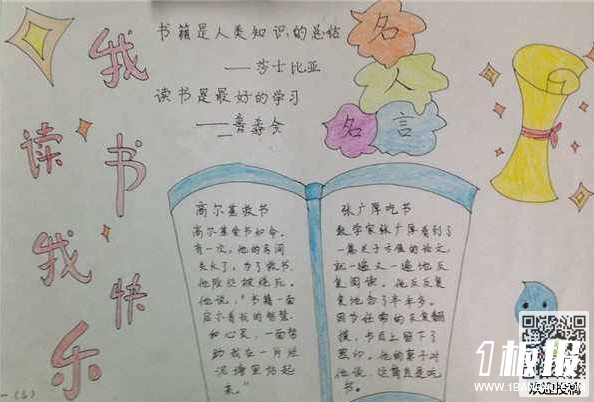 我读书我快乐
书籍是人类知识的总结
——莎士比亚
读书是最好的学习
名人名言
高尔基救书
高尔基爱书如命.
有一次,他的房间
失火了,为了救书,
他险些被烧死.
他说,"书籍一面
启示着我的智慧
和心灵,一面帮
助我在一片烂
泥塘里站起
来."
张广厚吃书
数学家张广厚看到了
一篇关于亏值的论文,
就一遍又一遍地反
复阅读。他反反复
复地念了半年多。
因为经常的反复翻
摸,书页上留下了
黑印。他的妻子对
他说,这简直是吃
书。
1板报
WWW.1BANBAO.COM
欢迎投稿